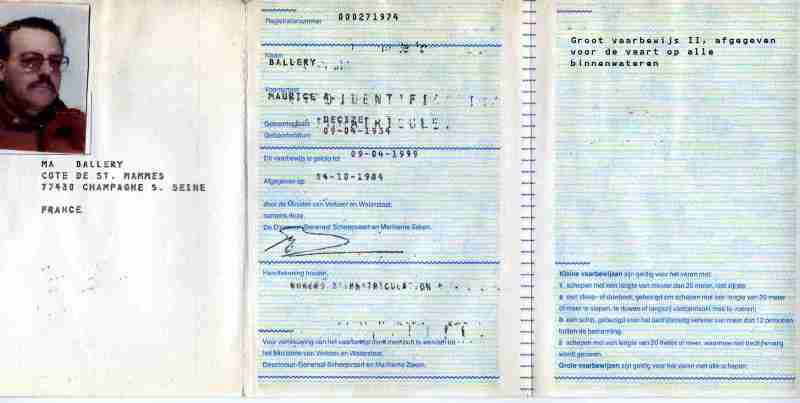 MA BALLERY
COTE DE ST. MAMMES
77430 CHAMPAGNE S. SEINE
FRANCE
Registratienummer 000271974
Naam
BALLERY
Voornamen
MAURICE A.
D'IDENTIFI
Geboorteplaats DECIZE
MATRICULE
Geboortedatum 09-04-1934
Dit vaarbewijs is geldig tot 09-04-1999
Afgegeven op 04-10-1984
door de Minister van Verkeer en Waterstaat,
namens deze,
De Directeur-Generaal Scheepvaart en Maritieme Zaken,
Handtekening houder,
NUMERO D'IMMATRICULATION
Voor vernieuwing van het vaarbewijs dient men zich te wenden tot
het Ministerie van Verkeer en Waterstaat,
Directoraat-Generaal Scheepvaart en Maritieme Zaken.
Groot vaarbewijs II, afgegeven
voor de vaart op alle
binnenwateren
Kleine vaarbewijzen zijn geldig voor het varen met:
1. schepen met een lengte van minder dan 20 meter, niet zijnde:
a een sleep- of duwboot, gebezigd om schepen met een lengte van 20
meter of meer te slepen, te duwen of langszij vastgemaakt mee te voeren;
b een schip, gebezigd voor het bedrijfsmatig vervoer van meer dan 12 personen
buiten de bemanning.
2. schepen met een lengte van 20 meter of meer, waarmee niet bedrijfsmatig
wordt gevaren.
Grote vaarbewijzen zijn geldig voor het varen met alle schepen.